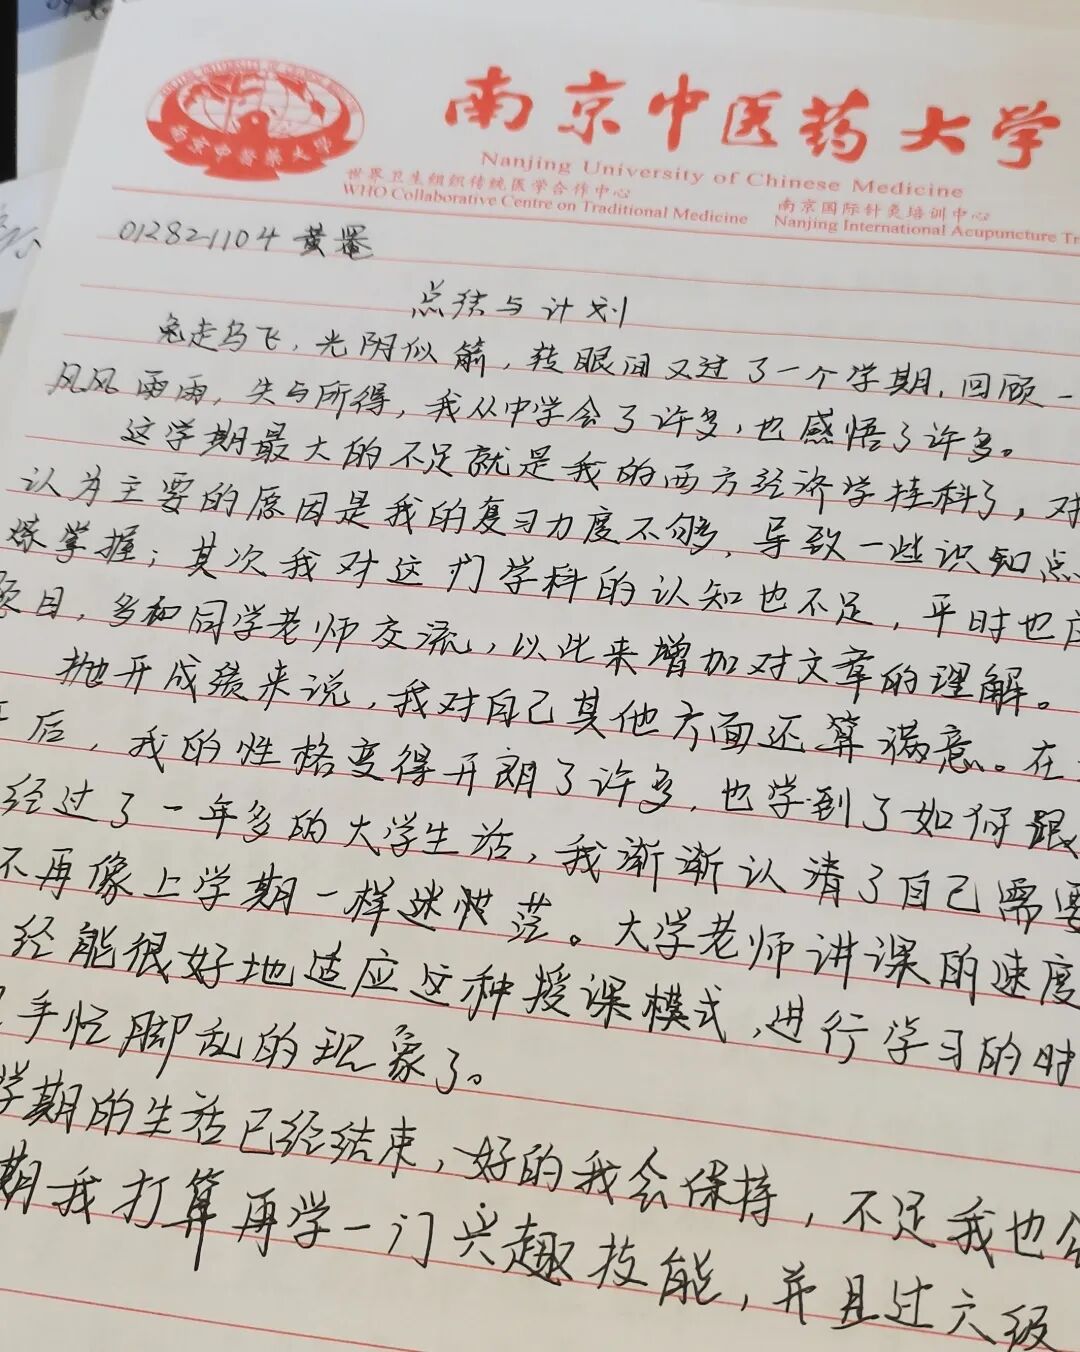 南京中医药大学
Nanjing University of Chinese Medicine
世界卫生组织传统医学合作中心
WHO Collaborative Centre on Traditional Medicine
南京国际针灸培训中心
Nanjing International Acupuncture Tr
012821104 黄
总结与计划
兔走乌飞，光阴似箭，转眼间又过了一个学期，回顾一
风风雨雨，失与所得，我从中学会了许多，也感悟了许多。
这学期最大的不足就是我的西方经济学挂科了，对
认为主要的原因是我的复习力度不够，导致一些识知点
炼掌握；其次我对这门学科的认知也不足，平时也应
项目，多和同学老师交流，以此来增加对文章的理解。
抛开成绩来说，我对自己其他方面还算满意。在
后，我的性格变得开朗了许多，也学到了如何跟
经过了一年多的大学生活，我渐渐认清了自己需要
不再像上学期一样迷惘茫。大学老师讲课的速度
经能很好地适应这种授课模式，进行学习的时
手忙脚乱的现象了。
学期的生活已经结束，好的我会保持，不足我也会
期我打算再学一门兴趣技能，并且过六级